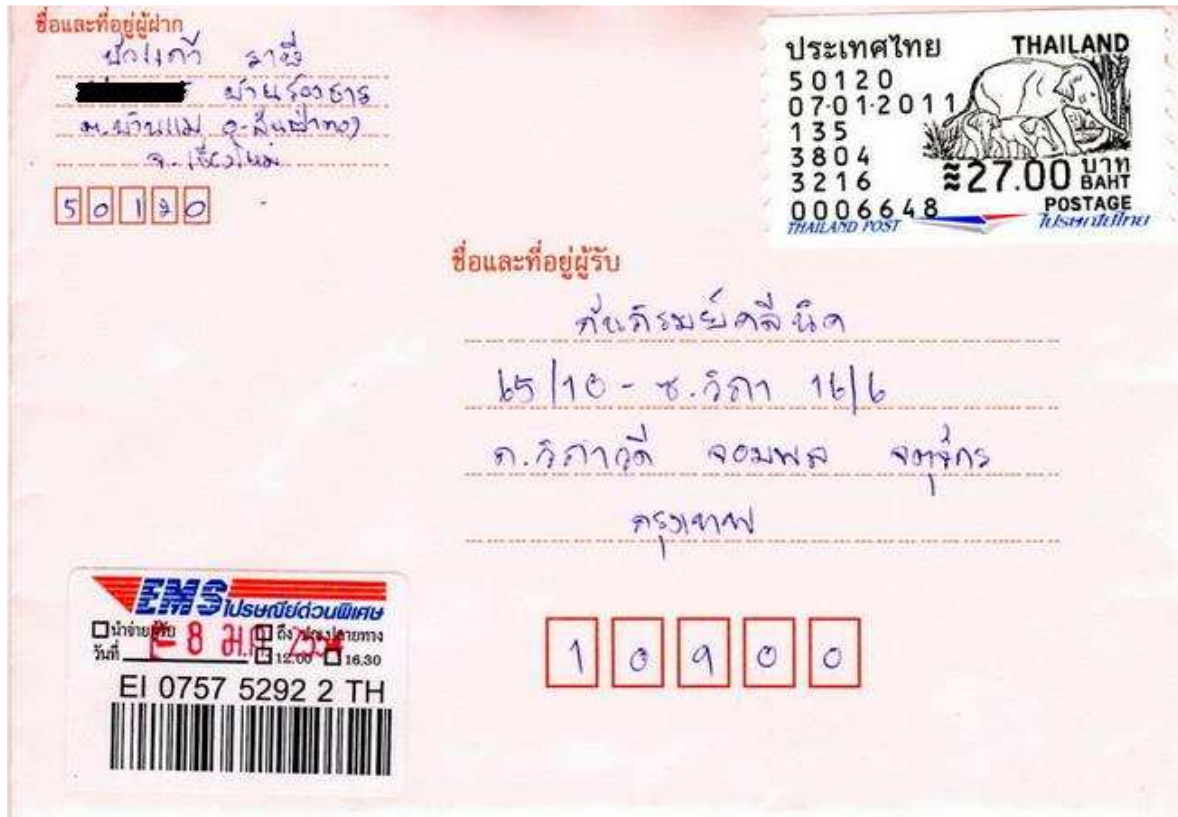 ชื่อและที่อยู่ผู้ฝาก
บัวแก้ว
บ้านร้องธาร
ต.บ้านแม อ.สันป่าตอง
จ.เชียงใหม่
50120
ประเทศไทย THAILAND
50120
07·01·2011
135
3804
3216 ≋27.00 บาท BAHT
0006648 POSTAGE
THAILAND POST ไปรษณีย์ไทย
ชื่อและที่อยู่ผู้รับ
กันภิรมย์คลีนิค
65/10 - ซ.วิภา 16/6
ถ.วิภาวดี จอมพล จตุจักร
กรุงเทพ
10900
EMS ไปรษณีย์ด่วนพิเศษ
นำจ่ายผู้รับ ถึง ปลายทาง
วันที่ - 8 ม.ค. 2554 12.00 16.30
EI 0757 5292 2 TH